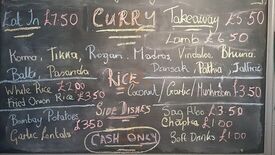 Eat In £7.50 CURRY Takeaway £5.50
Lamb £6.50
Korma, Tikka, Rogan, Madras, Vindaloo, Bhuna,
Balti, Pasanda Dansak, Pathia, Jalfrezi
RICE
White Rice £2.00 Coconut/Garlic/Mushroom £3.50
Fried Onion Rice £3.50
SIDE DISHES
Bombay Potatoes £3.50 Saag Aloo £3.50
Chapka £1.00
Garlic Lentils CASH ONLY Soft Drinks £1.00